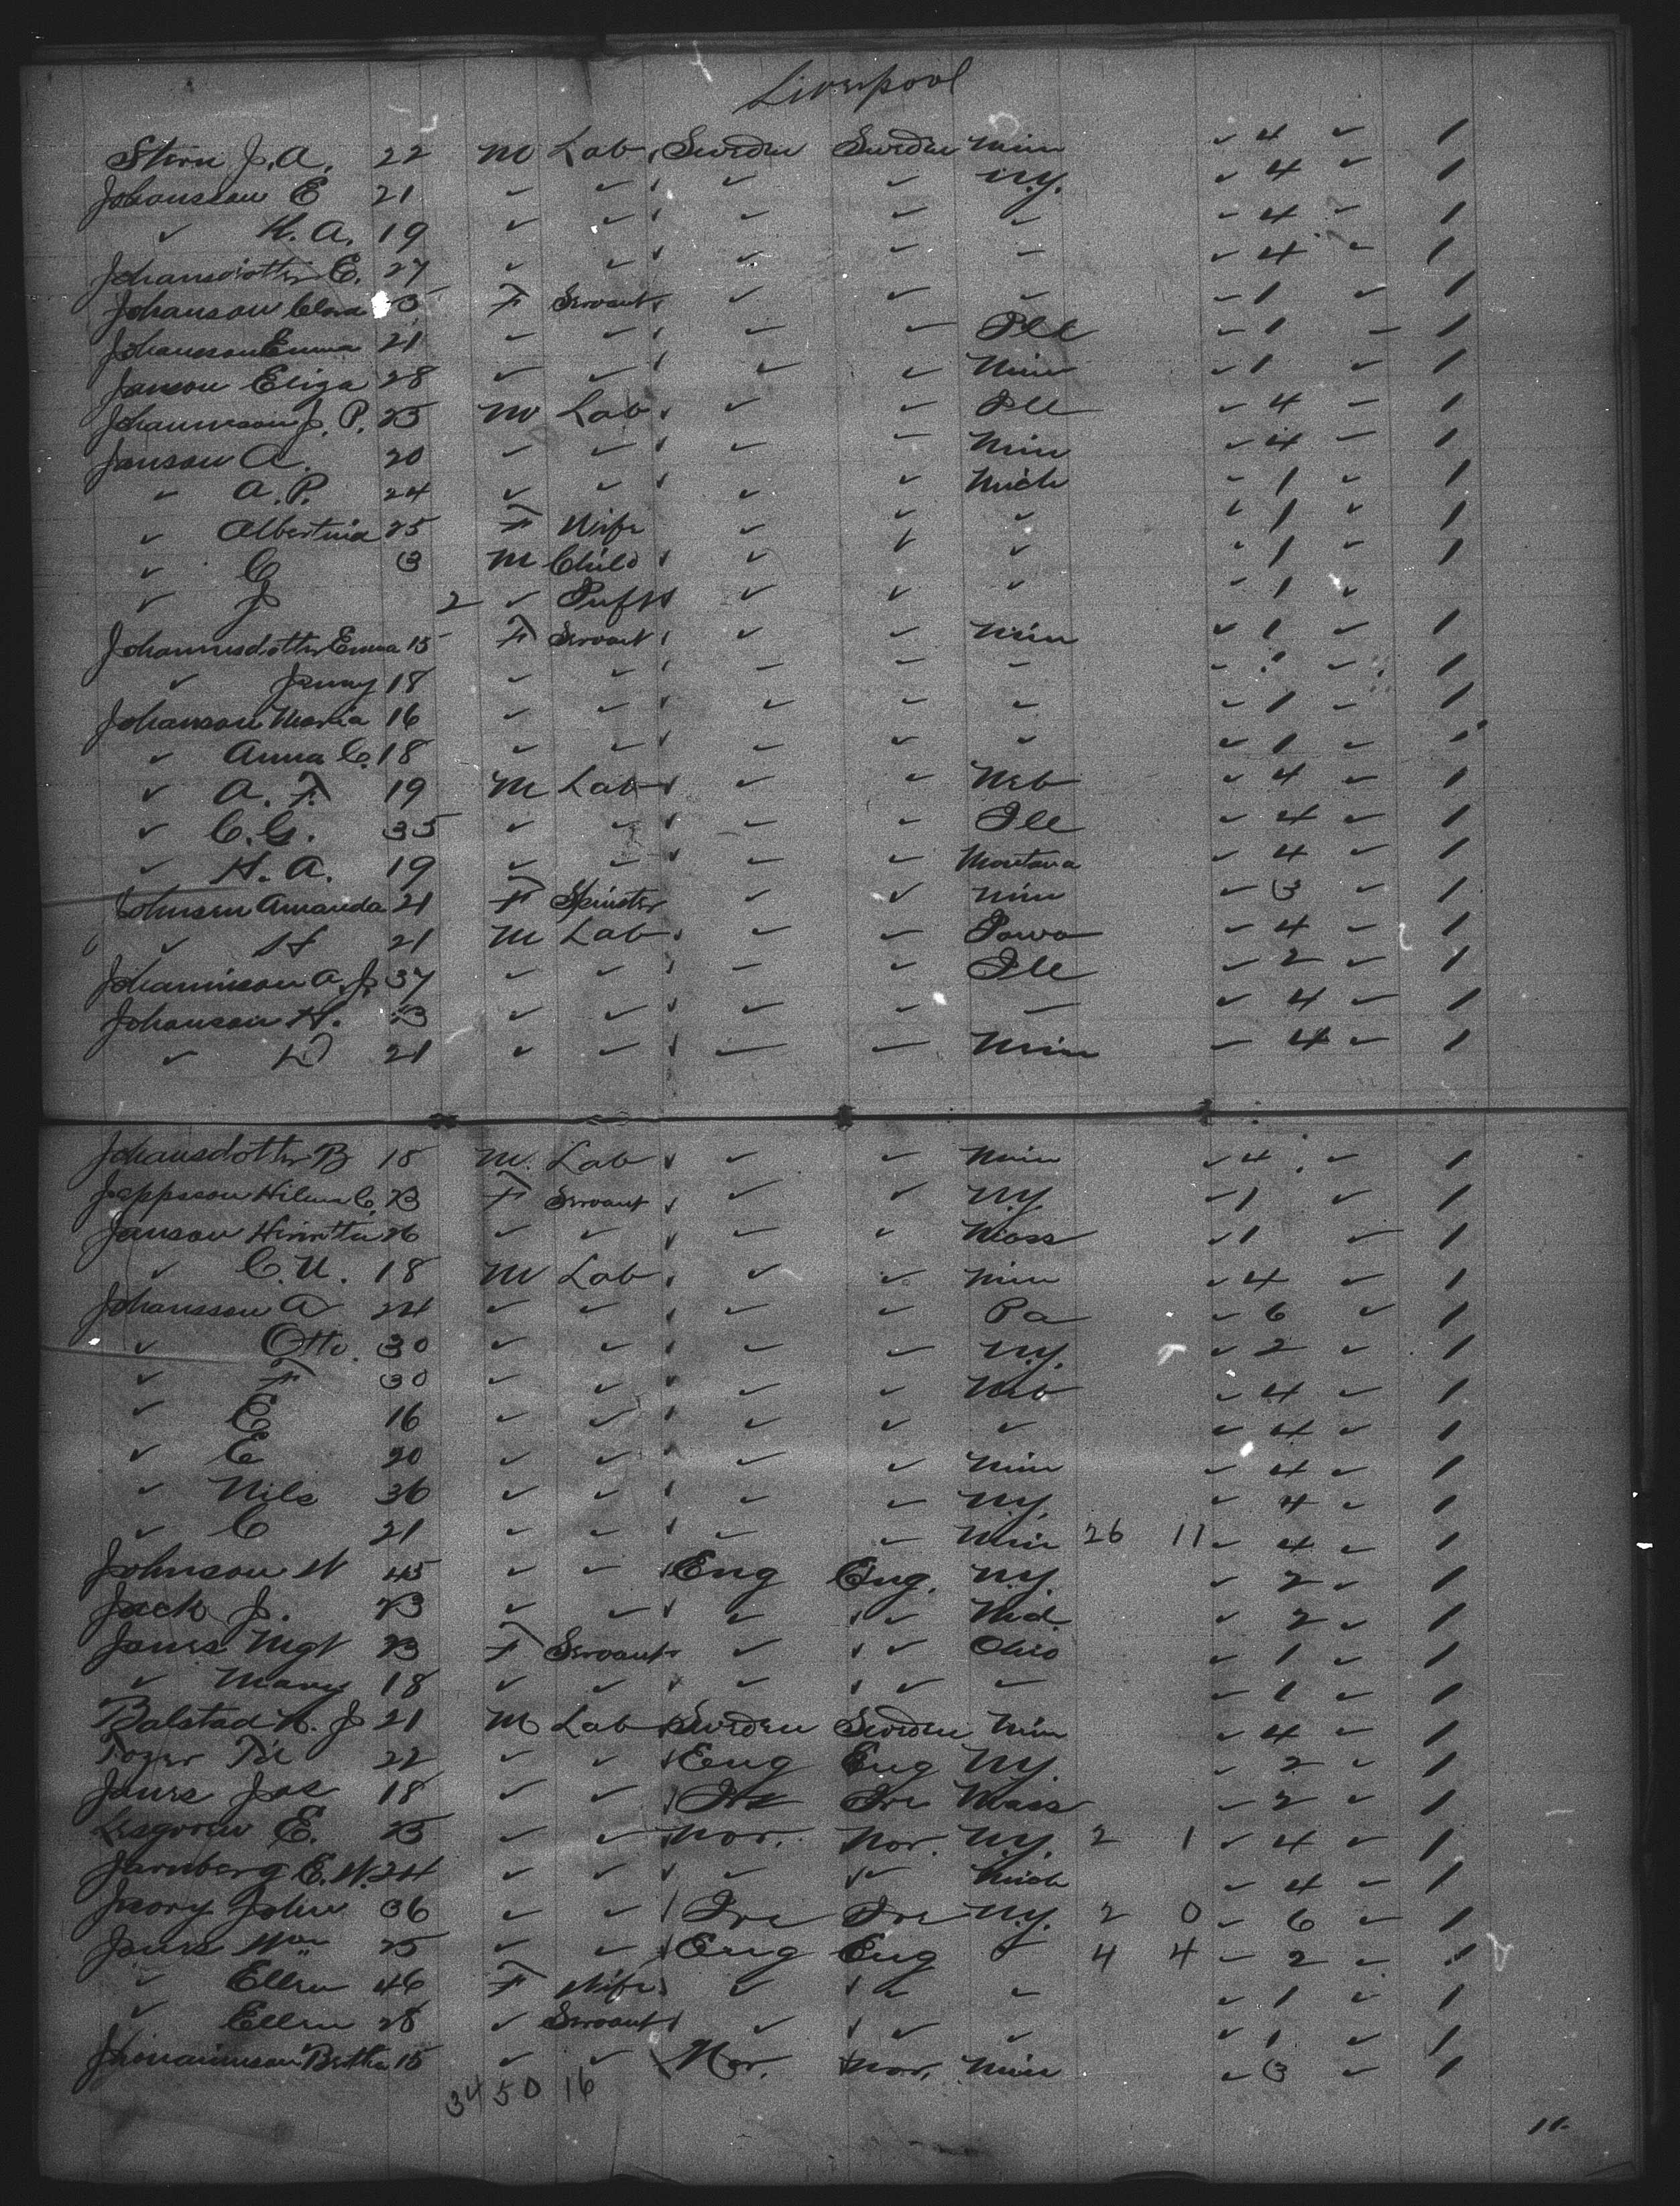 Liverpool
Stern J. A. 22 M Lab Sweden Sweden Minn ✓ 4 ✓ 1
Johansson E 21 ✓ ✓ ✓ ✓ N.Y. ✓ 4 ✓ 1
✓ K. A. 19 ✓ ✓ ✓ ✓ ✓ ✓ 4 ✓ 1
Johansdotter E. 27 ✓ ✓ ✓ ✓ ✓ ✓ 4 ✓ 1
Johanson Clara F Servant ✓ ✓ ✓ ✓ 1 ✓ 1
Johansson Emma 21 ✓ ✓ ✓ ✓ Ill ✓ 1 ✓ 1
Janson Eliza 28 ✓ ✓ ✓ ✓ Minn ✓ 1 ✓ 1
Johanneson J. P. 23 M Lab ✓ ✓ Ill ✓ 4 ✓ 1
Janson A. 20 ✓ ✓ ✓ ✓ Minn ✓ 4 ✓ 1
✓ A. P. 24 ✓ ✓ ✓ ✓ Mich ✓ 1 ✓ 1
✓ Albertina 25 F Wife ✓ ✓ ✓ ✓ 1 ✓ 1
✓ C 3 M Child ✓ ✓ ✓ ✓ 1 ✓ 1
✓ J 2 ✓ Inft ✓ ✓ ✓ ✓ 1 ✓
Johannesdotter Emma 15 F Servant ✓ ✓ Minn ✓ 1 ✓ 1
✓ Jenny 18 ✓ ✓ ✓ ✓ ✓ ✓ 1 ✓ 1
Johanson Maria 16 ✓ ✓ ✓ ✓ ✓ ✓ 1 ✓ 1
✓ Anna C. 18 ✓ ✓ ✓ ✓ ✓ ✓ 1 ✓ 1
✓ A. F. 19 M Lab ✓ ✓ Neb ✓ 4 ✓ 1
✓ C. G. 35 ✓ ✓ ✓ ✓ Ill ✓ 4 ✓ 1
✓ H. A. 19 ✓ ✓ ✓ ✓ Montana ✓ 4 ✓ 1
Johnsen Amanda 21 F Spinster ✓ ✓ Minn ✓ 3 ✓ 1
✓ H 21 M Lab ✓ ✓ Iowa ✓ 4 ✓ 1
Johannisson A. J. 37 ✓ ✓ ✓ ✓ Ill ✓ 2 ✓ 1
Johanson H. ✓ ✓ ✓ ✓ ✓ ✓ 4 ✓ 1
✓ D 21 ✓ ✓ ✓ ✓ Minn ✓ 4 ✓ 1
Johansdotter B 18 M. Lab ✓ ✓ Minn ✓ 4 ✓ 1
Jeppsson Hilma C. 23 F Servant ✓ ✓ N.Y. ✓ 1 ✓ 1
Janson 26 ✓ ✓ ✓ ✓ Mass ✓ 1 ✓ 1
✓ C. U. 18 M Lab ✓ ✓ Minn ✓ 4 ✓ 1
Johansson A 24 ✓ ✓ ✓ ✓ Pa ✓ 6 ✓ 1
✓ Otto 30 ✓ ✓ ✓ ✓ N.Y. ✓ 2 ✓ 1
✓ F 30 ✓ ✓ ✓ ✓ Neb ✓ 4 ✓ 1
✓ E 16 ✓ ✓ ✓ ✓ ✓ ✓ 4 ✓ 1
✓ E 20 ✓ ✓ ✓ ✓ Minn ✓ 4 ✓ 1
✓ Nils 36 ✓ ✓ ✓ ✓ N.Y. ✓ 4 ✓ 1
✓ C 21 ✓ ✓ ✓ ✓ Minn 26 11 ✓ 4 ✓ 1
Johnson W 45 ✓ ✓ Eng Eng. N.Y. ✓ 2 ✓ 1
Jack J. 23 ✓ ✓ ✓ ✓ Md. ✓ 2 ✓ 1
Jones Mgt 23 F Servant ✓ ✓ Ohio ✓ 1 ✓ 1
✓ Mary 18 ✓ ✓ ✓ ✓ ✓ ✓ 1 ✓ 1
Balstad N. J 21 M Lab Sweden Sweden Minn ✓ 4 ✓ 1
22 ✓ ✓ Eng Eng N.Y. ✓ 2 ✓ 1
Jones Jas 18 ✓ ✓ Ire Ire Mass ✓ 2 ✓ 1
E. 23 ✓ ✓ Nor. Nor. N.Y. 2 1 ✓ 4 ✓ 1
Jarnberg E. W. 24 ✓ ✓ ✓ ✓ Mich ✓ 4 ✓ 1
John 36 ✓ ✓ Ire Ire N.Y. 2 0 ✓ 6 ✓ 1
Jones Wm 25 ✓ ✓ Eng Eng ✓ 4 4 ✓ 2 ✓ 1
✓ Ellen 46 F Wife ✓ ✓ ✓ ✓ 1 ✓ 1
✓ Ellen 28 ✓ Servant ✓ ✓ ✓ ✓ 1 ✓ 1
Johannisson Bertha 15 ✓ ✓ Nor. Nor. Minn ✓ 3 ✓ 1
34 50 16
11.